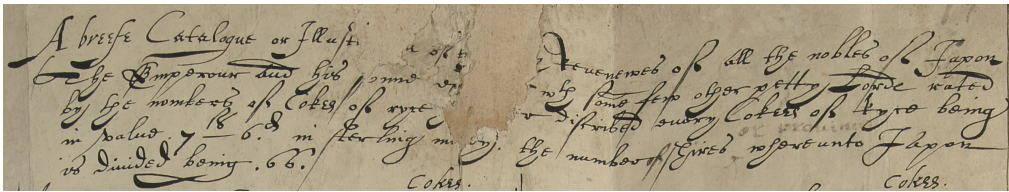 A breefe Catalogue or Illust a of t Revenewes of all the nobles of Japon
the Emperour and his sonne wth some few other petty Lords rated
by the numbers of Cokes of ryce discribed every Coke of Ryce being
in value 7s 6d in sterling mony. the number of shires whereunto Japon
is divided being .66.
Cokes. Cokes.